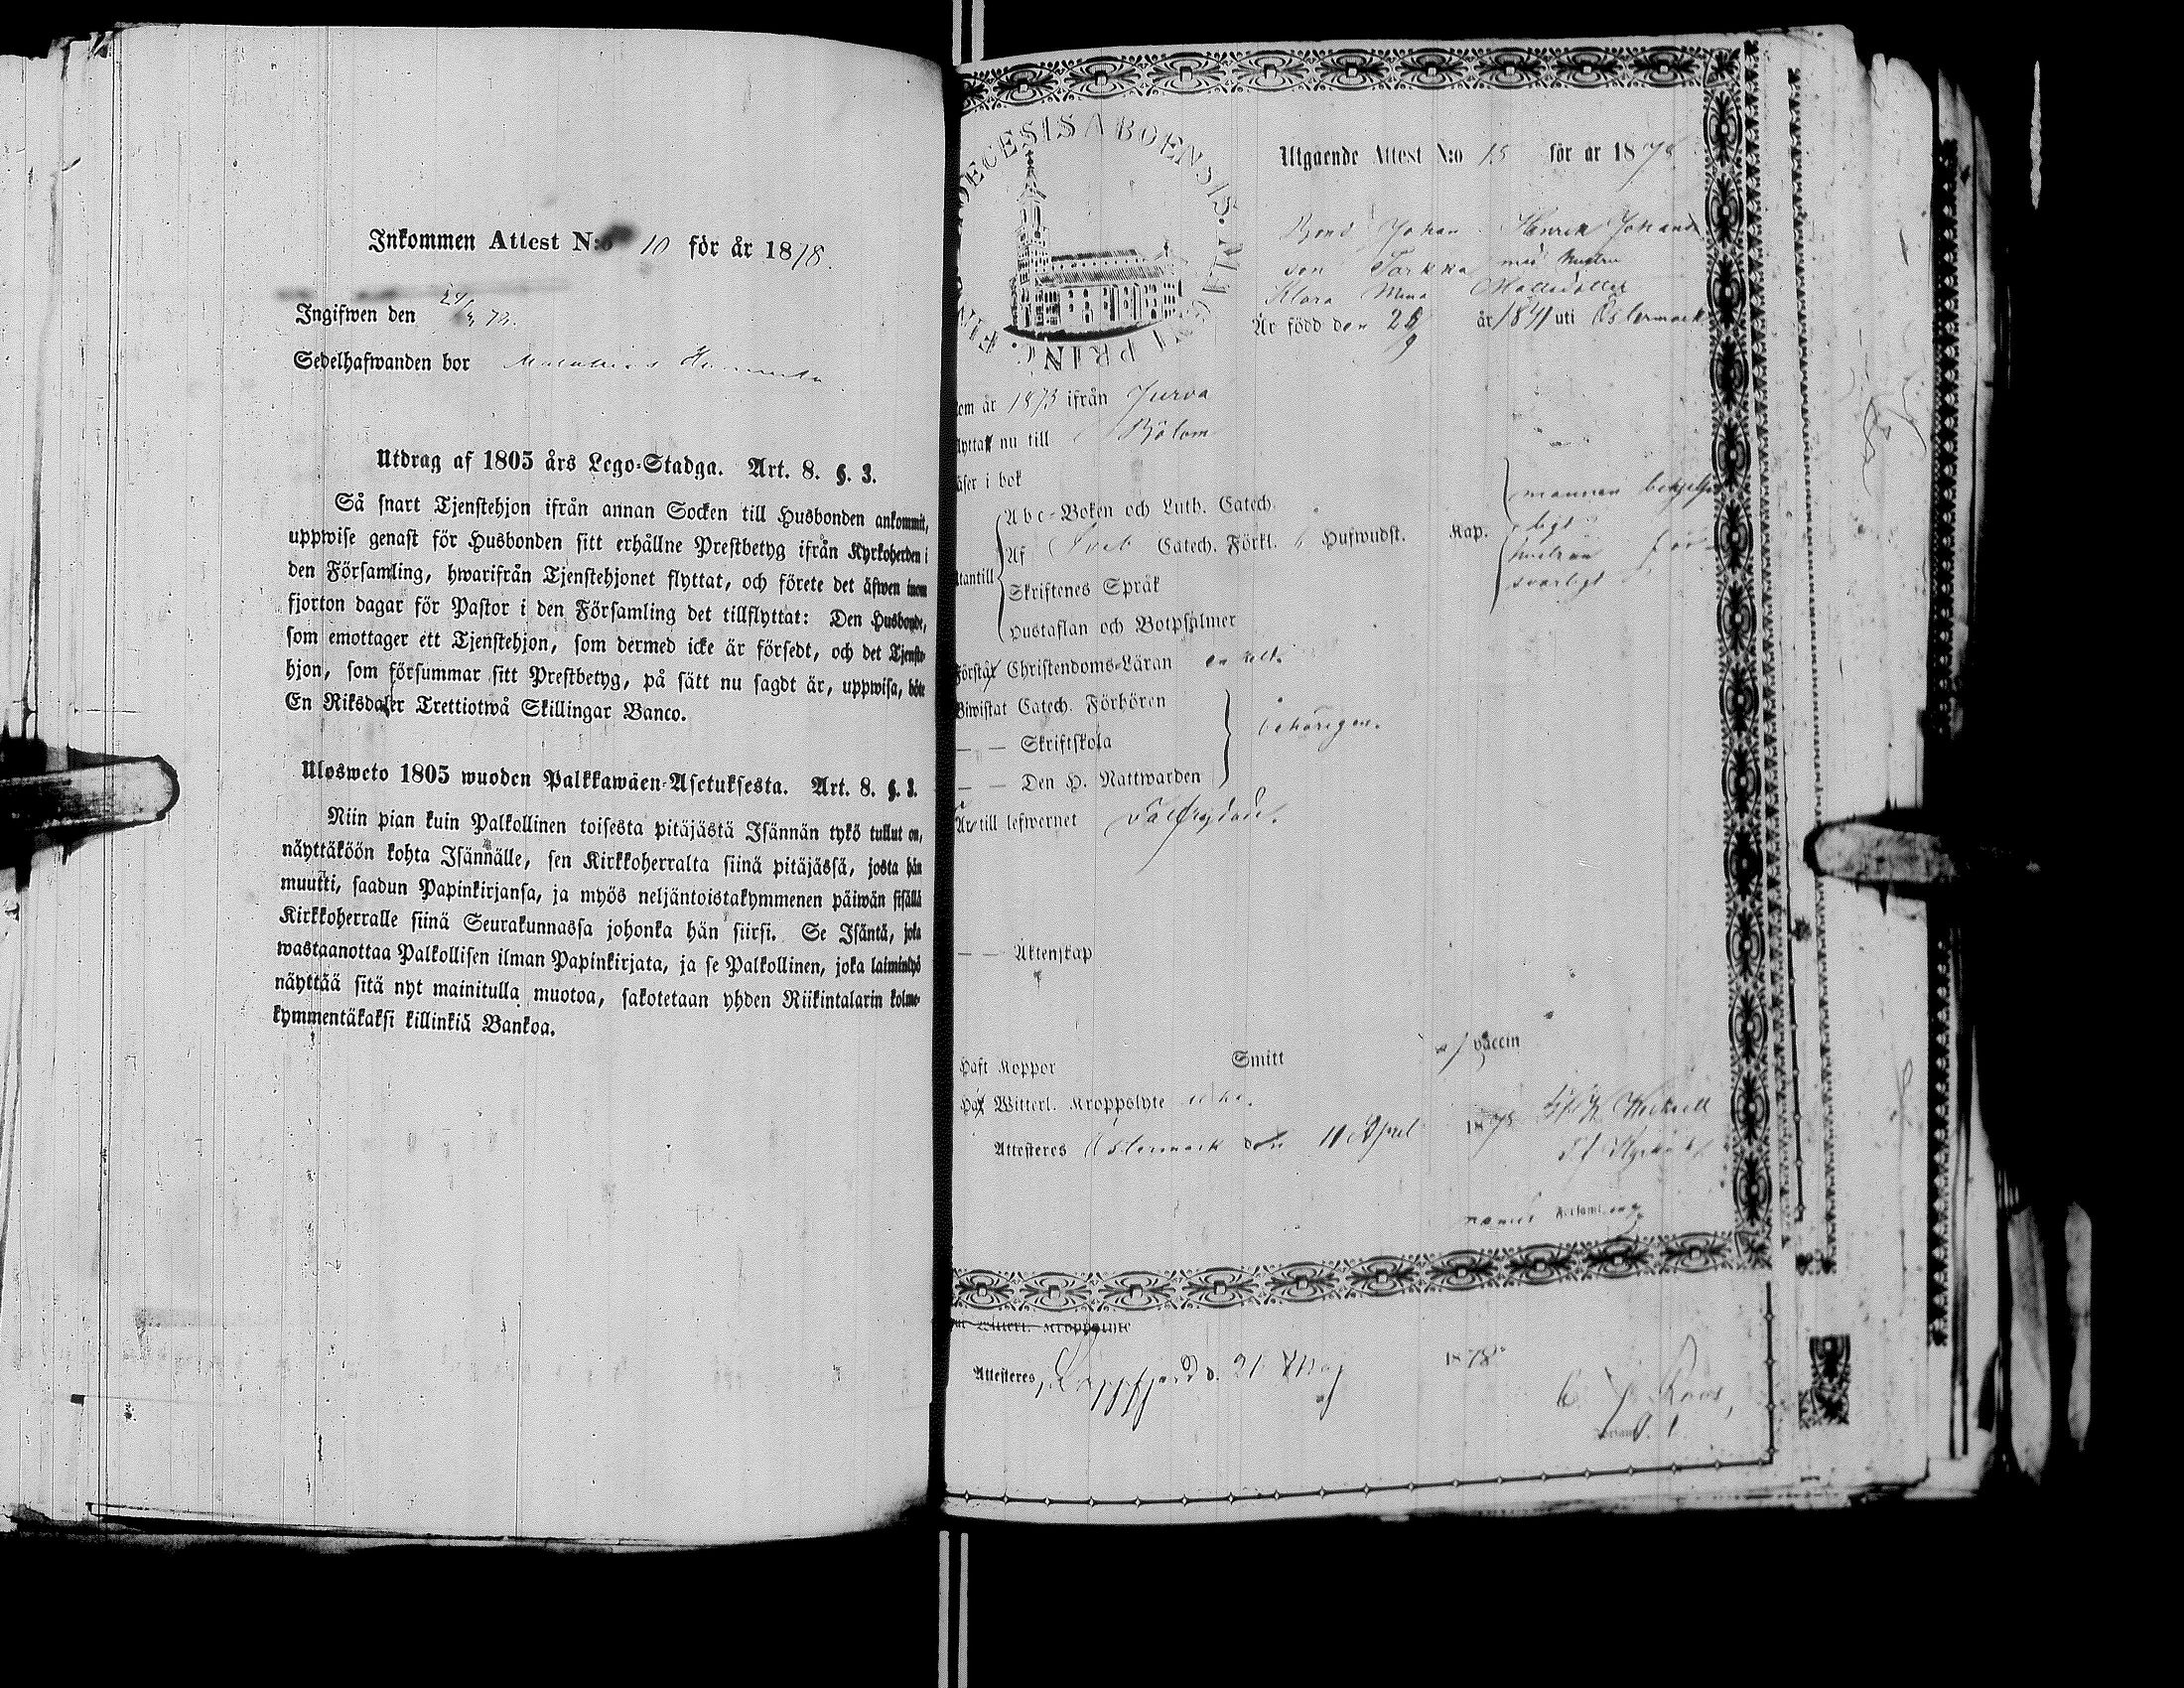 Inkommen Attest N:o 10 för år 1878.
Ingifwen den
Sedelhafwanden bor
Utdrag af 1805 års Lego-Stadga. Art. 8. §. 3.
Så snart Tjenstehjon ifrån annan Socken till Husbonden ankommit,
uppwise genast för Husbonden sitt erhållne Prestbetyg ifrån Kyrkoherden i
den Församling, hwarifrån Tjenstehjonet flyttat, och förete det äfwen inom
fjorton dagar för Pastor i den Församling det tillflyttat: Den Husbonde,
som emottager ett Tjenstehjon, som dermed icke är försedt, och det Tjenste-
hjon, som försummar sitt Prestbetyg, på sätt nu sagdt är, uppwisa, böte
En Riksdaler Trettiotwå Skillingar Banco.
Ulosweto 1805 wuoden Palkkawäen-Asetuksesta. Art. 8. §. 3.
Niin pian kuin Palkollinen toisesta pitäjästä Isännän tykö tullut on,
näyttäköön kohta Isännälle, sen Kirkkoherralta siinä pitäjässä, josta hän
muutti, saadun Papinkirjansa, ja myös neljäntoistakymmenen päiwän sisällä
Kirkkoherralle siinä Seurakunnassa johonka hän siirsi. Se Isäntä, joka
wastaanottaa Palkollisen ilman Papinkirjata, ja se Palkollinen, joka laiminlyö
näyttää sitä nyt mainitulla muotoa, sakotetaan yhden Riikintalarin kolme-
kymmentäkaksi killinkiä Bankoa.
DIOECESIS ABOENSIS. MAGNI PRINC. FINL.
Utgaende Attest N:o 15 för ar 1878
Bond Johan Henrik Johans
son Tarkka med hustru
Klara Mina Mattsdotter
Är född den 28/9 år 1841 uti Östermark
kom år 1873 ifrån Jurva
flyttar nu till Bötom
läser i bok
Abc-Boken och Luth. Catech.
Utantill Af Sveb Catech. Förkl. 6 Hufwudst. Kap.
mannen
hustrun
svarligt
Skriftenes Språk
Hustaflan och Botpsalmer
Förstår Christendoms-Läran enkelt.
Biwistat Catech. Förhören
— — Skriftskola behörigen.
— — Den H. Nattwarden
Är till lefwernet oförvitlig
— — Äktenskap
Haft Koppor Smitt vaccin
Har Witterl. Kroppslyte icke.
Attesteres Östermark den 11 April 1878
Församling
Witterl. Kroppslyte
Attesteres, Lappfjerd d. 21 Maj 1878
Roos,